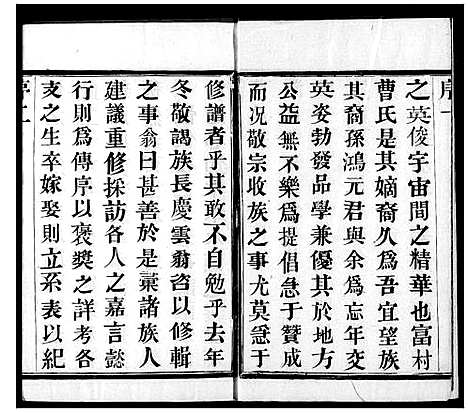 之英俊宇宙間之精華也富村
曹氏是其嫡裔久為吾宜望族
其裔孫鴻元君與余為忘年交
英姿勃發品學兼優其於地方
公益無不樂為提倡急于贊成
而况敬宗收族之事尤莫急于
修譜者乎其敢不自勉乎去年
冬敬謁族長慶雲翁咨以修輯
之事翁曰甚善於是稟諸族人
建議重修採訪各人之嘉言懿
行則為傳序以褒獎之詳考各
支之生卒嫁娶則立系表以紀